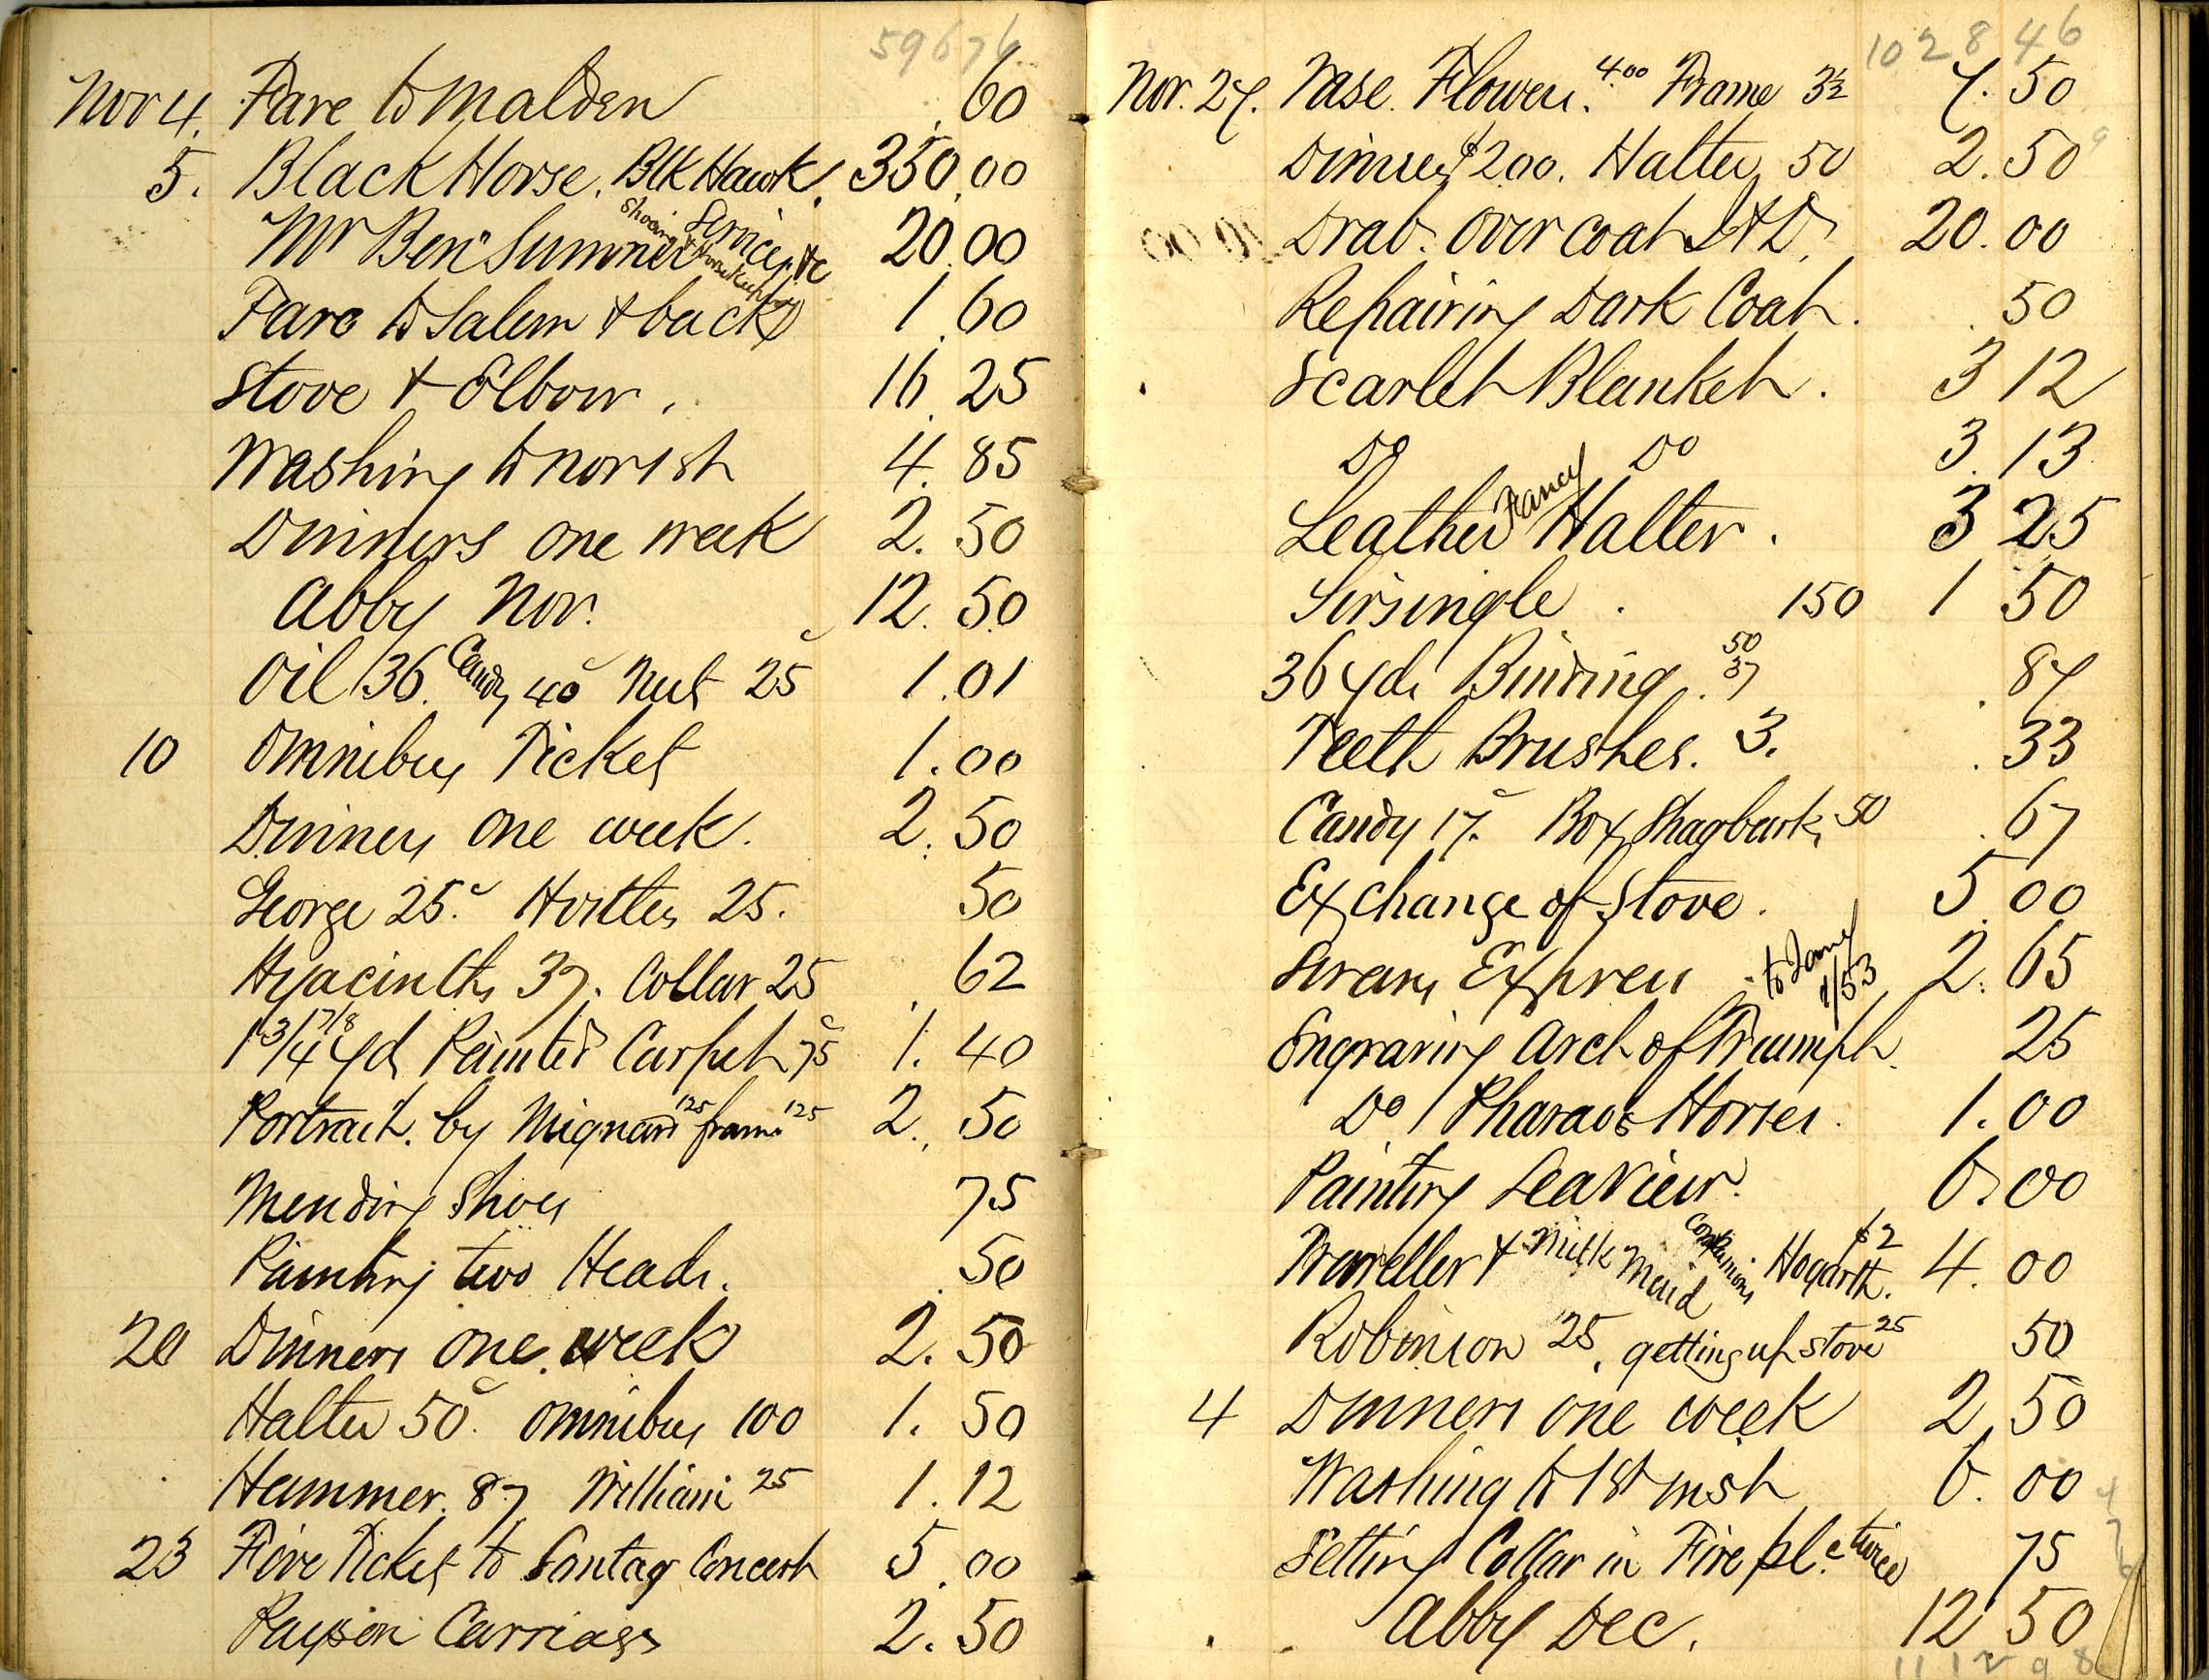 59676
Nov 4. Fare to Malden . 60
5. Black Horse. Blk Hawk. 350.00
Mr Benn Sumner Services &c shoeing & horsekeeping 20.00
Fare to Salem & back 1.60
Stove & Elbow. 16.25
Washing to Nov 1st 4.85
Dinners one week 2.50
Abby Nov. 12.50
Oil 36. Candy 40c Nuts 25c 1.01
10 Omnibus Ticket 1.00
Dinners one week. 2.50
George 25c. Hostler 25. 50
Hyacinths 37. Collar 25 . 62
1 3/4 7/8 yd Painted Carpet 75c 1.40
Portrait. by Mignard 125 frame 125 2.50
Mending Shoes 75
Painting two Heads. . 50
20 Dinners one week 2.50
Halter 50c. Omnibus 100 1.50
Hammer. 87 William 25 1.12
23 Five Tickets to Sontag Concert 5.00
Payson Carriages 2.50
102846
Nov. 27. Vase. Flowers. 4.00 Frame 3½ 7.50
Dinners $200. Halter 50 2.50
Drab. Over coat 20.00
Repairing Dark Coat. . 50
Scarlet Blanket. 3 12
Do Do 3.13
Leather Fancy Halter. 3 25
Sirsingle . 150 1 50
36 yds Binding. 50 37 . 87
Teeth Brushes. 3. . 33
Candy 17c. Box Shagbarks 50 . 67
Exchange of Stove. 5.00
Express to Jany 1/53 2.65
Engraving Arch of Triumph. 25
Do Pharaos Horses. 1.00
Painting Sea View. 6.00
Traveller & Milk Maid Companions Hogarth. $2 4.00
Robinson 25. getting up stove 25 50
4 Dinners one week 2.50
Washing to 1st inst 6.00
Setting Collar in Fire plc. twice 75
Abby Dec. 12 50